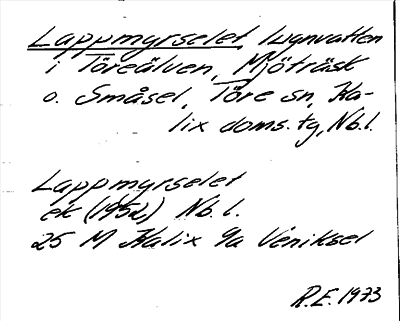 Lappmyrselet, lugnvatten
i Töreälven, Mjöträsk
o. Småsel, Töre sn, Ka-
lix doms. tg, Nb.l.
Lappmyrselet
ek (1952) Nb. l.
25 M Kalix 9a Veniksel
R.E. 1973